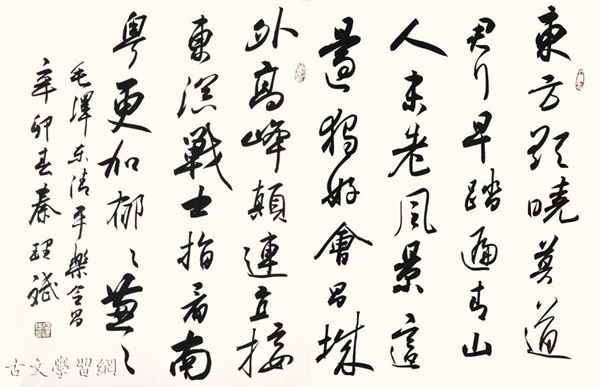 東方欲曉莫道
君行早踏遍青山
人未老風景這
邊獨好會昌城
外高峰顛連直接
東溟戰士指看南
粵更加郁〻蔥〻
毛澤东清平樂会昌
辛卯春秦理斌
古文學習網